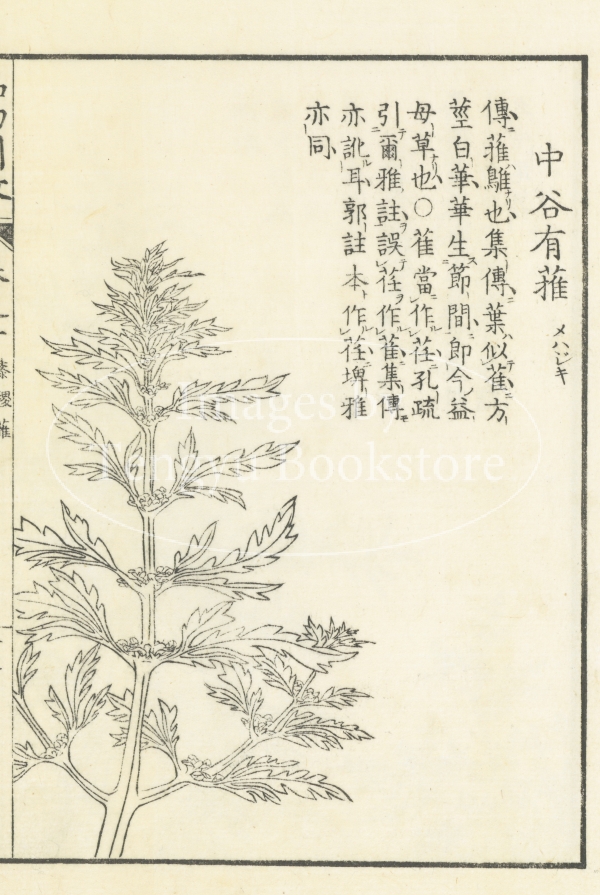 中谷有蓷 メハジキ
傳蓷鵻也集傳葉似萑方
莖白華華生節間即今益
母草也〇萑當作荏孔疏
引爾雅註誤荏作萑集傳
亦訛耳郭註本作荏埤雅
亦同
Images by
Tenkyu Bookstore